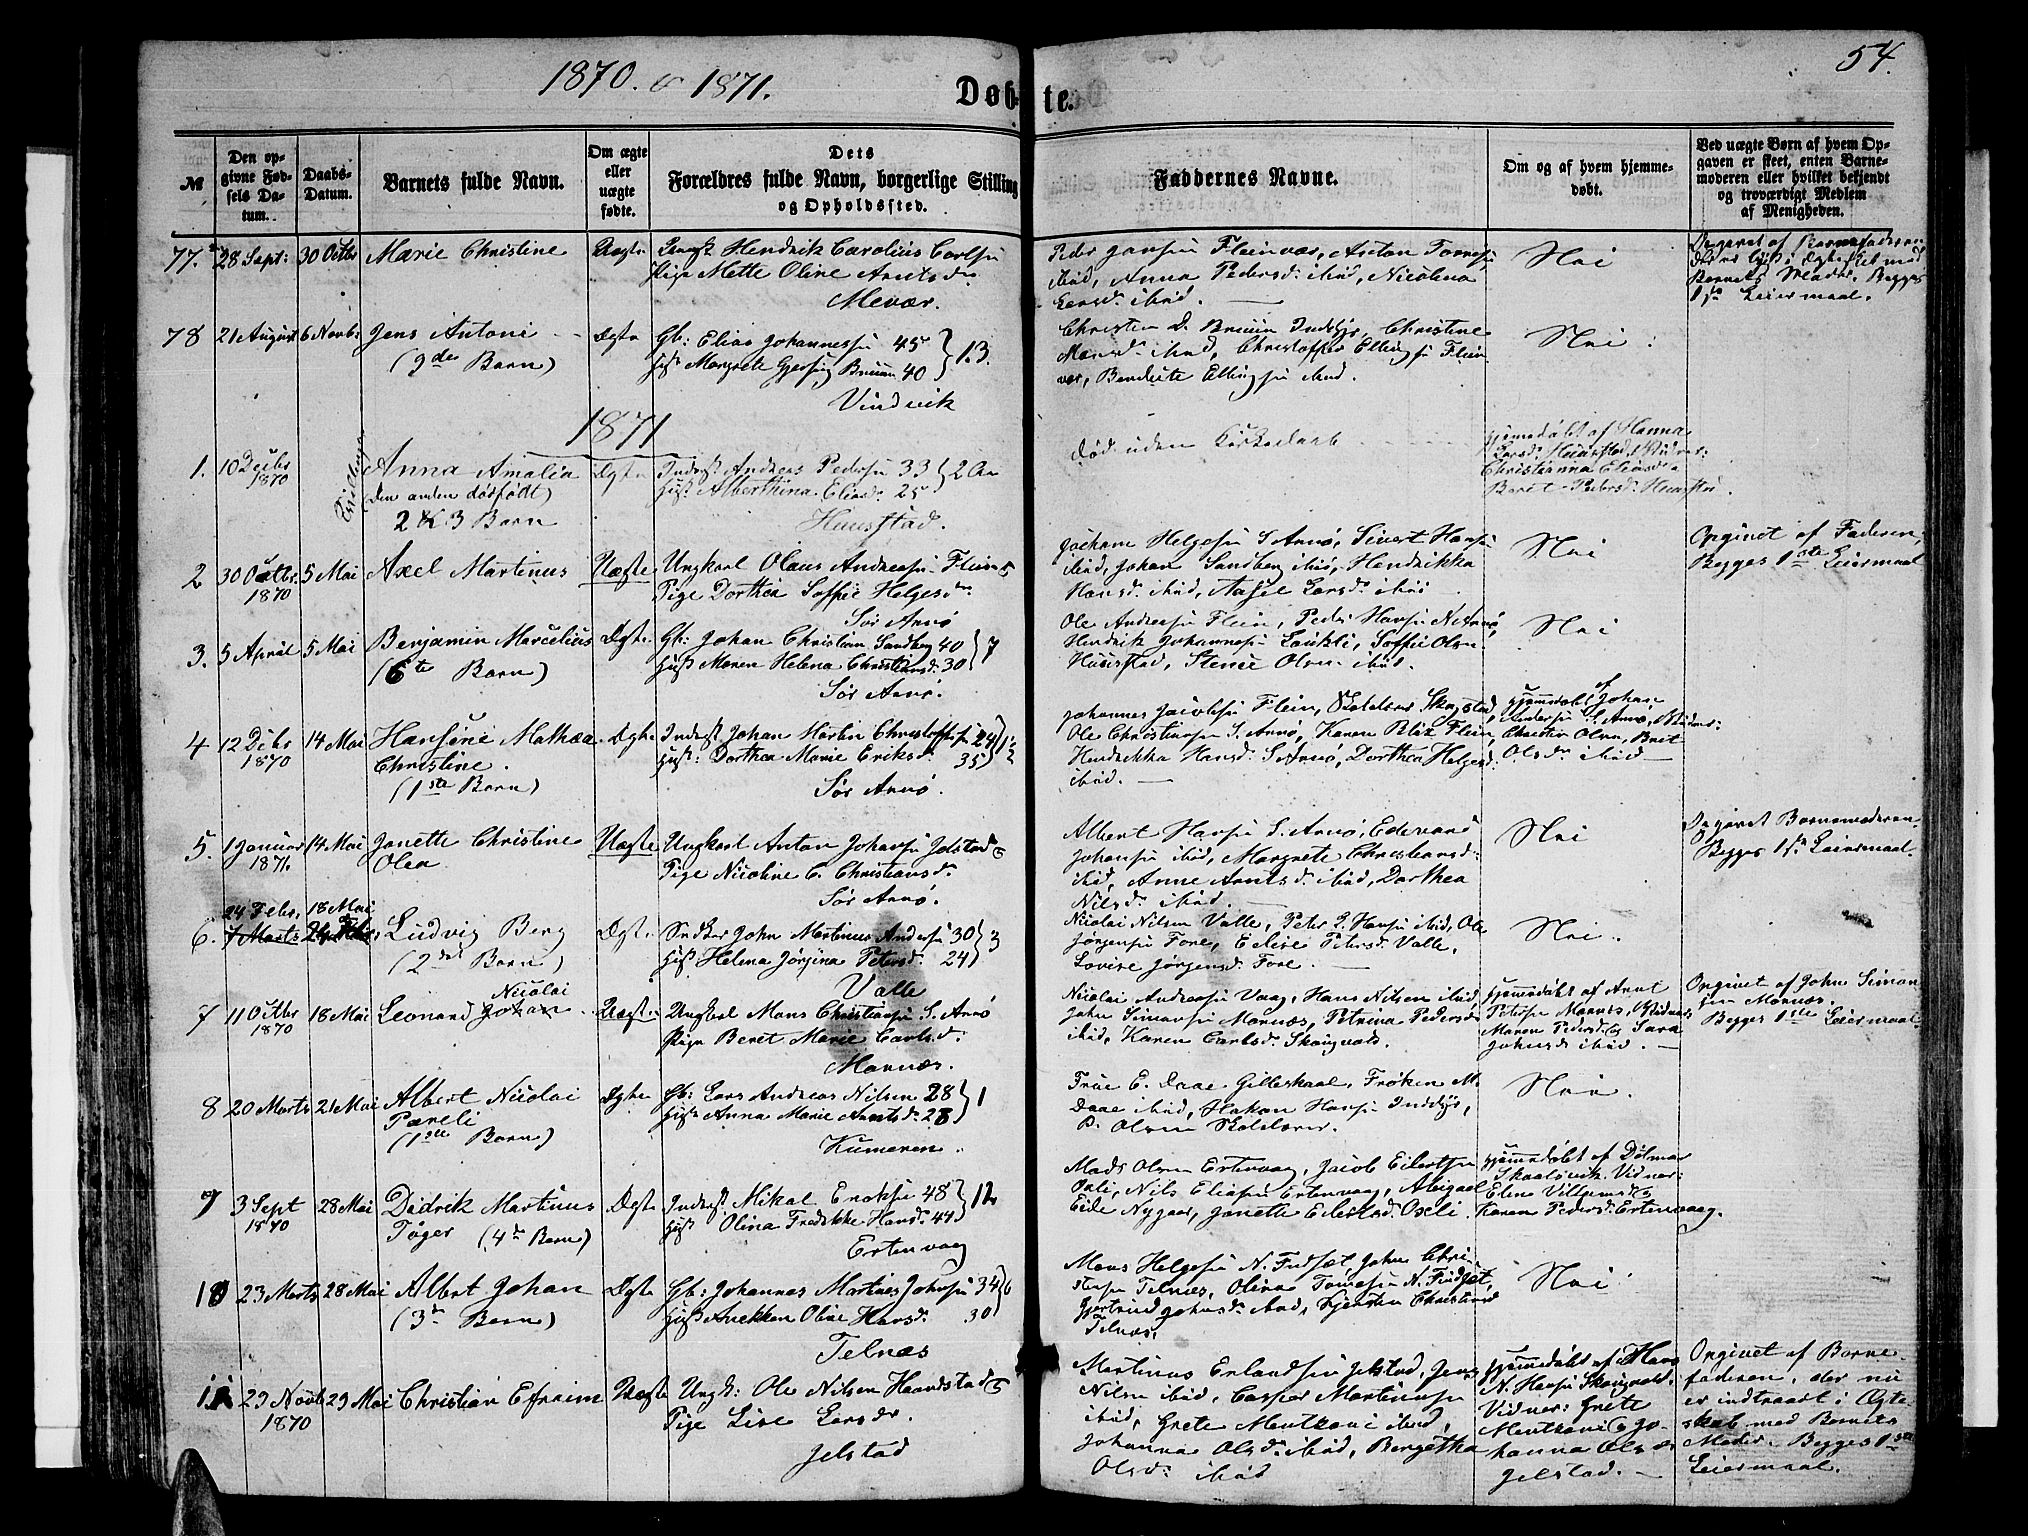 1870. & 1871.
54.
Døbte.
№
Den opgivne Fødsels Datum.
Daabs-Datum.
Barnets fulde Navn.
Om ægte eller uægte fødte.
Dets Forældres fulde Navn, borgerlige Stilling og Opholdssted.
Faddernes Navne.
Om og af hvem hjemmedøbt.
Ved uægte Børn af hvem Opgaven er skeet, enten Barnemoderen eller hvilket bekjendt og troværdigt Medlem af Menigheden.
77. 28 Sept: 30 Octbr Marie Christine
Hendrik Carolius
Pige Mette Oline Arntsdr
Mevær.
Peder Jensen Fleinvær, Anton
ibid, Anna Pedersd. ibid, Nicolina
Larsd. ibid.
Nei
Barnets Moder. Begges
1ste Leiermaal.
78 21 August 6 Novbr Jens Antoni Ægte
(9de Barn)
Gb: Elias Johannessen 45
Hust Margrete Bruun 40 } 13.
Vindvik
Christen D. Bruun Inddyr, Christine
ibid, Christopher Ellingsen Flein
vær, ibid.
Nei.
1871
1. 10 Decbr 1870
Tvilling
Anna Amalia
(den anden dødfødt)
2 & 3 Barn
Ægte
Inderst Andreas Pedersen 33
Hust Alberthina Eliasd. 25 } 2 Aar
Haustad.
død uden Kirkedaab
hjemmedøbt af Hanna
Larsd.
Christianna Eliasd.
Beret Pedersd.
2 30 Octbr 1870 5 Mai Axel Martinus Uægte
Ungkarl Olaus Andreasen Flein &
Pige Dorthea Soffie Helgesdr
Sør Arnø
Jochum Helgesen S. Arnø, Sivert Hansen
ibid, Johan Sandberg ibid, Hendrikka
Hansd. ibid, Larsd. ibid
Nei
Opgivet af Faderen,
Begges 1ste Leiermaal
3. 5 April 5 Mai Benjamin Marcelius Ægte
(6te Barn)
Gb: Johan Christian Sandberg 40
Hust Maren Helena Christiansd. 30 } 7
Sør Arnø.
Ole Andreasen Flein, Peder Hansen N. Arnø,
Hendrik Johannesen Soffie Olsen
Stenie Olsen ibid.
Nei
4 12 Decbr 1870 14 Mai Hansine Mathea
Christine.
(1ste Barn)
Ægte
Inderst Johan Martin Christoffersen 24
Hust: Dorthea Marie Eriksd. 35
Sør Arnø.
Johannes Jacobsen Flein,
Ole Christiansen S. Arnø, Karen Blix Flein,
Hendrikka Hansd. S. Arnø, Dorthea Helgesd.
ibid.
hjemmedøbt af Johan
Andersen S. Arnø, Vidner:
Christian Olsen, Berit
Olsd. ibid
5. 1 Januar 1871. 14 Mai Janette Christine
Olea
Uægte
Ungkarl Anton Johansen Jelstad &
Pige Nicoline C. Christiansd.
Sør Arnø.
Albert Hansen S. Arnø, Edevard
Johansen ibid, Margrete Christensd.
ibid, Anne Arntsd. ibid, Dorthea
Nilsd. ibid.
Nei
Opgivet Barnemoderen
Begges 1ste Leiermaal.
24 Febr. 18 Mai
6. 7 Marts 24 Febr. Ludvig Berg Ægte
(2det Barn)
Snedker John Martinus Andersen 30
Hust Helena Jørgina Petersd. 24 } 3
Valle
Nicolai Nilsen Valle, Peter J. Hansen ibid, Ole
Jørgensen Fore, Petersd. Valle,
Lovise Jørgensd. Fore.
Nei.
7 11 Octbr 1870 18 Mai Leonard Johan Nicolai Uægte
Ungkarl Mons Christiansen S. Arnø
Pige Beret Marie Carlsd.
Mornæs.
Nicolai Andreasen Vaag, Hans Nilsen ibid,
John Simonsen Mornæs, Petrina Pedersd.
ibid, Karen Carlsd. Skaugvold.
hjemmedøbt af Arnt
Petersen Mornæs, Vidner:
Maren Pedersd. og Sara
Johnsd. ibid.
Opgivet af John Simon
sen Mornæs.
Begges 1ste Leiermaal
8 20 Marts 21 Mai Albert Nicolai
Pareli
(1ste Barn)
Ægte
Gb: Lars Andreas Nilsen 28
Hust Anna Marie Arntsd. 28 } 1
Kunneren.
Frue E. Daae Gilleskaal, Frøken M.
Daae ibid, Hakon Hansen Inddyr,
P. Olsen Skolelærer.
Nei.
9 3 Sept 1870 28 Mai Didrik Martinus
Tøger (4de Barn)
Ægte
Inderst Mikal Enoksen 48
Hust Olina Fredrikke Hansd. 44 } 12
Ertenvaag
Mads Olsen Ertenvaag, Jacob Eilertsen
Oxli, Nils Eliasen Ertenvaag, Abigael
Eide Nygaar, Janette Eilertsd. Oxli.
hjemmedøbt af Dølmar
Skaaløvik. Vidner:
Elene Villumsd. og
Karen Pedersd. Ertenvaag.
10 23 Marts 28 Mai Albert Johan Ægte
(3de Barn)
Gb: Johannes Martines Johnsen 34
Hust Anekken Oline Hansd. 30 } 6
Telnæs
Mons Helgesen N. Fudsæt, John Chri-
stensen Telnæs, Olina Tomesen N. Fudsæt,
Gjertrud Johnsd. ibid, Kjersten Christensd
Telnæs.
Nei.
11 23 Novbr 1870 29 Mai Christian Efraim Uægte
Ungk: Ole Nilsen Haandstad &
Pige Lise Larsdr.
Jelstad
Martinus Erlandsen Jelstad, Jens
Nilsen ibid, Casper Martinusen
ibid, Grete Mentzoni ibid,
Johanna Olsd. ibid, Bergitha
Olsd. ibid
hjemmedøbt af Hans
N. Hansen Skaugvold.
Vidner: Grete
Mentzoni & Jo-
hanna Olsdr
Jelstad.
Opgivet af Barne-
faderen, der nu
er indtraadt i Ægte
skab med Barnets
Moder. Begges 1ste
Leiermaal.